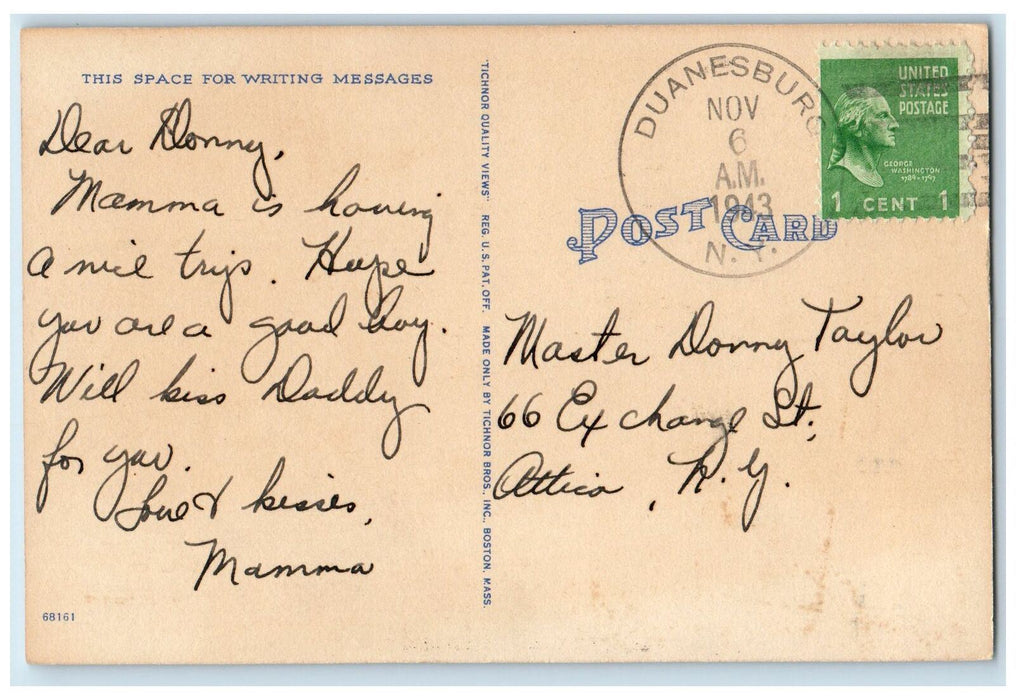 THIS SPACE FOR WRITING MESSAGES
Dear Donny,
Mamma is having
a nice trip. Hope
you are a good boy.
Will kiss Daddy
for you.
Love & kisses,
Mamma
68161
"TICHNOR QUALITY VIEWS" REG. U.S. PAT. OFF. MADE ONLY BY TICHNOR BROS., INC., BOSTON, MASS.
DUANESBURG
NOV
6
A.M.
1943
N.Y.
UNITED
STATES
POSTAGE
GEORGE
WASHINGTON
1789-1797
1 CENT 1
POST CARD
Master Donny Taylor
66 Exchange St.,
Attica, N.Y.